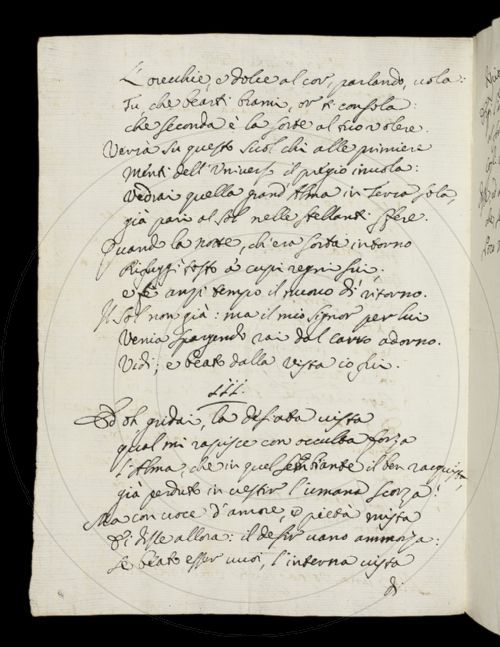 L'orecchie, e dolce al cor, parlando, vola:
Tu, che bearti brami, or ti consola:
che seconda è la sorte al tuo volere.
Verrà su questo suol chi alle primiere
Menti dell'Univers il pregio invola:
Vedrai quella grand'Alma in terra sola,
già pari al Sol nelle stellanti sfere.
Quando la notte, ch'era sorta intorno
Rifuggì tosto a' cupi regni sui,
e fè anzi tempo il nuovo dì ritorno.
Il Sol non già: ma il mio signor per lui
Venia spargendo rai dal carro adorno.
Vidi; e beato dalla vista io fui.
III.
Ed oh gridai, la desiata vista
qual mi rapisce con occulta forza
l'Alma, che in quel sembiante il ben racquista,
già perduto in vestir l'umana scorza!
Ma con voce d'amore, e pietà mista
allora: il desir vano ammorza:
Se beato esser vuoi, l'interna vista
di